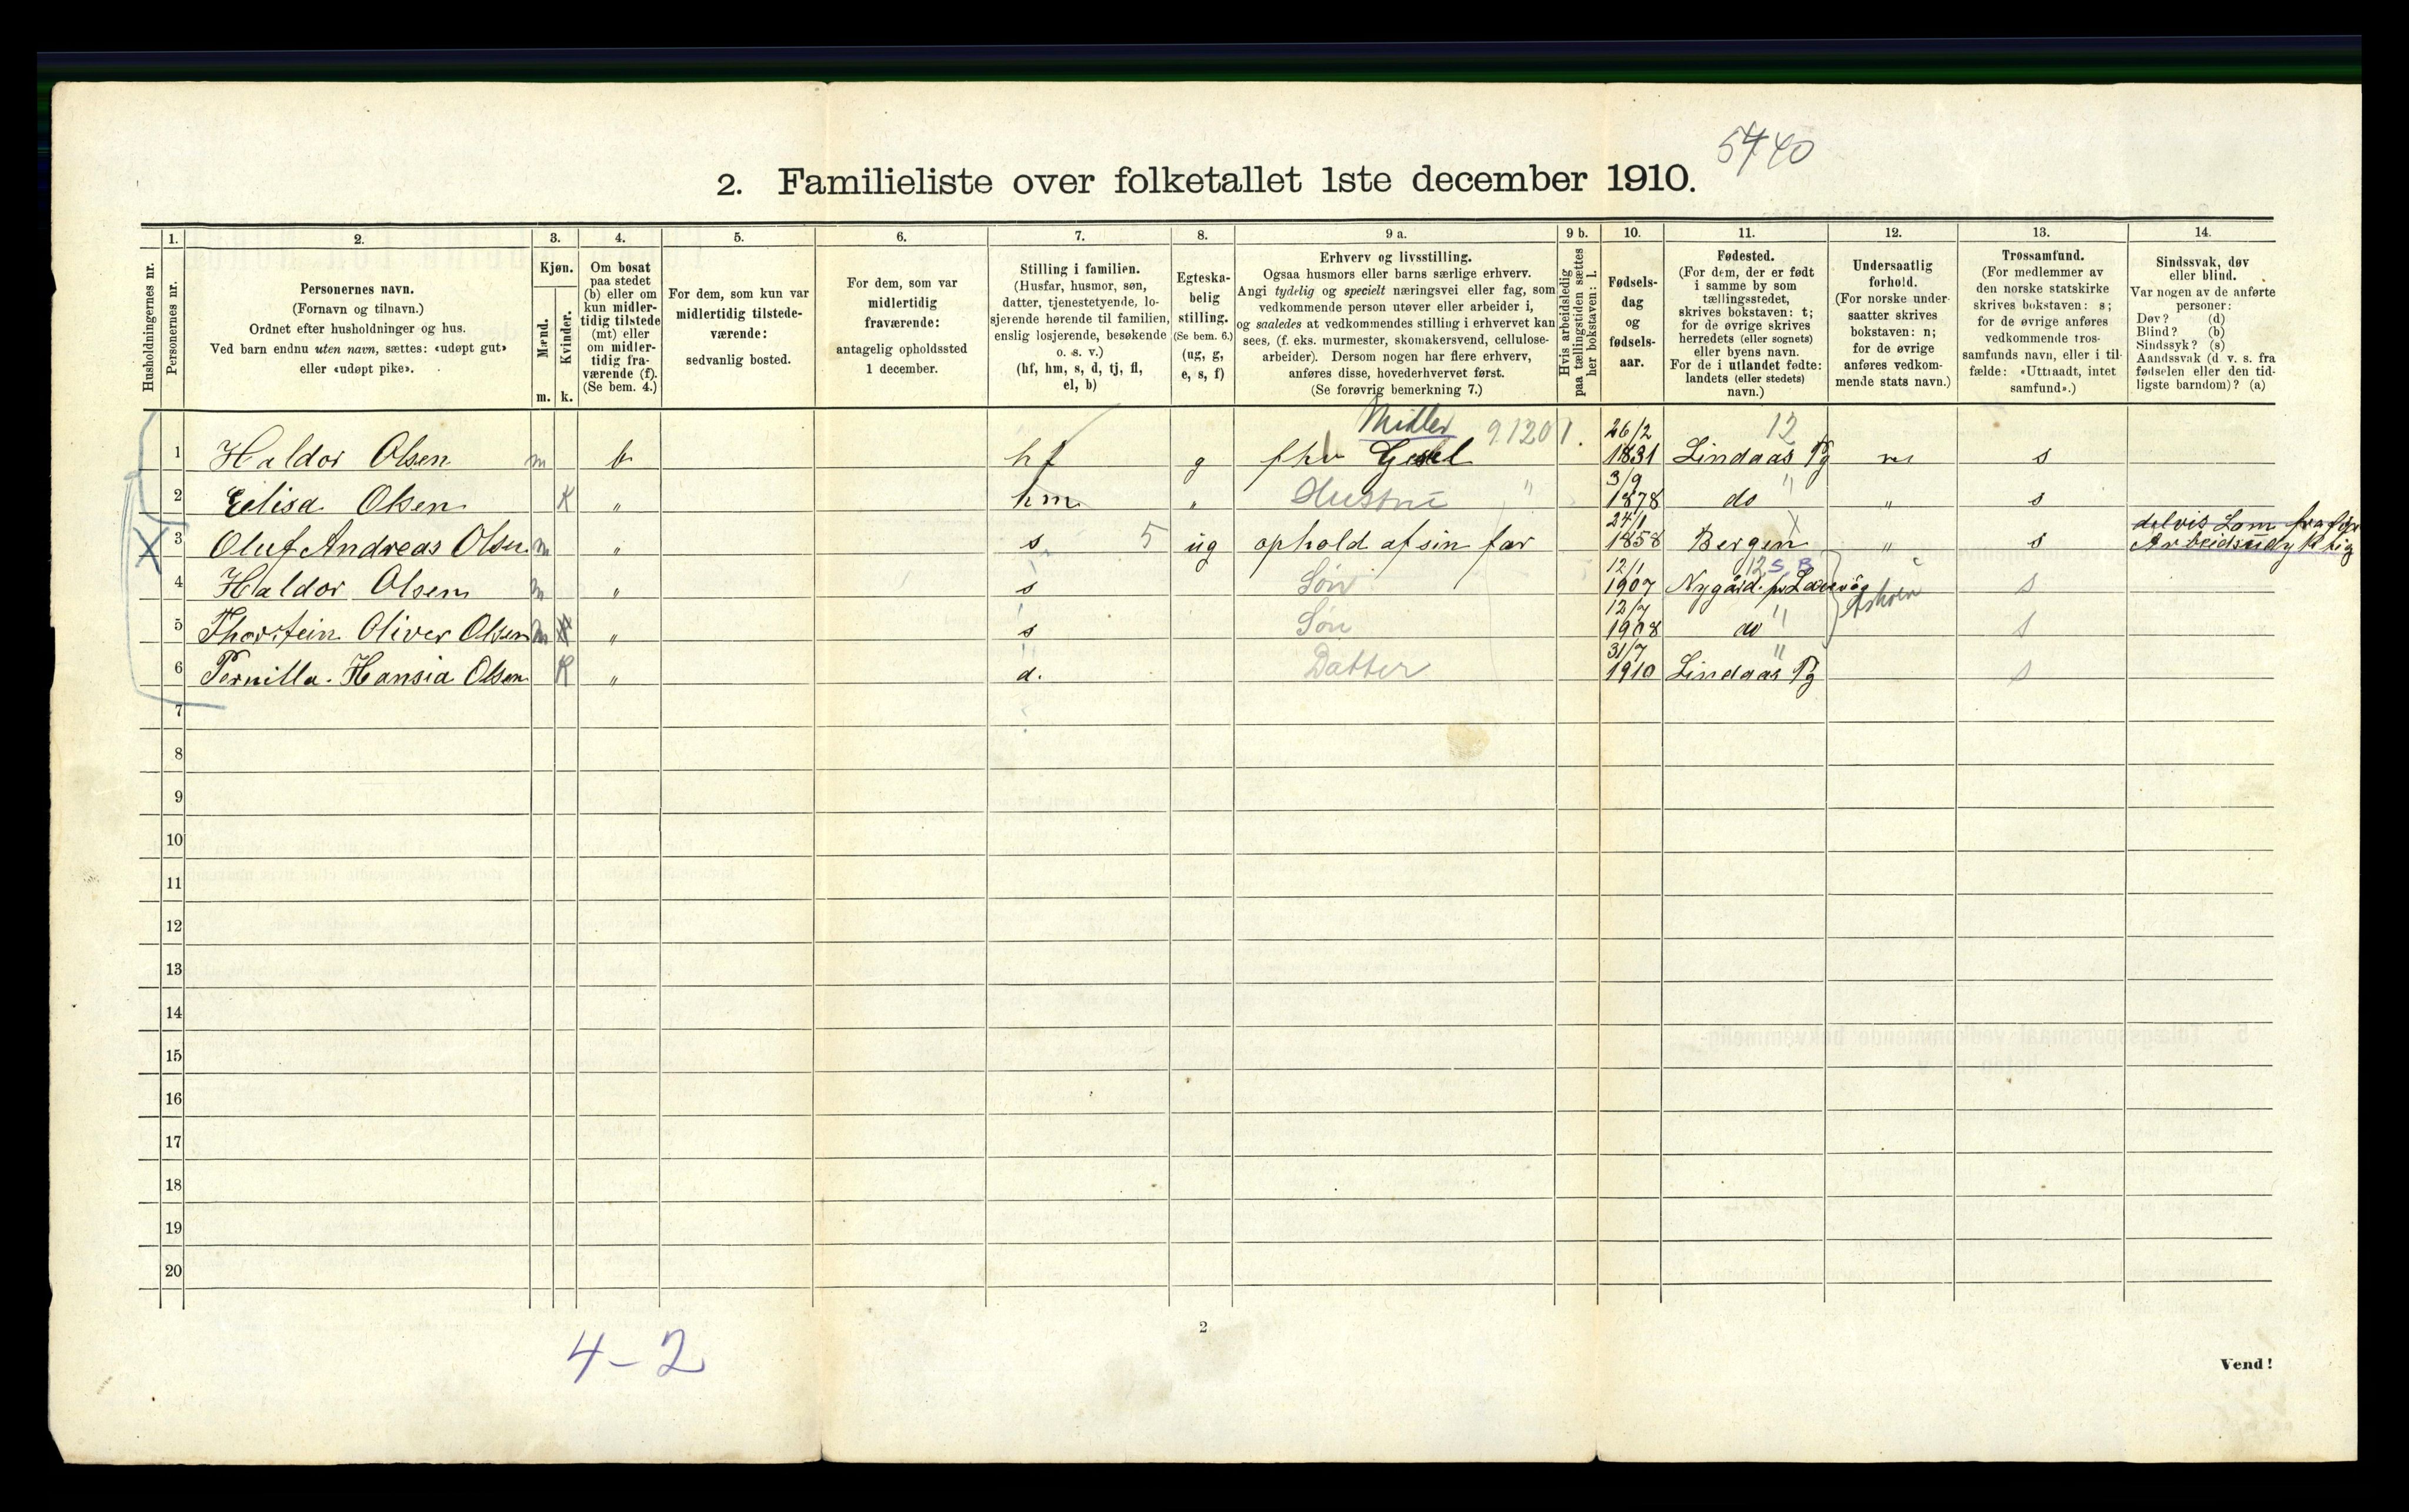 5740
2. Familieliste over folketallet 1ste december 1910.
Husholdningernes nr.
1.
Personernes nr.
2.
Personernes navn.
(Fornavn og tilnavn.)
Ordnet efter husholdninger og hus.
Ved barn endnu uten navn, sættes: «udøpt gut»
eller «udøpt pike».
3.
Kjøn.
Mænd.
Kvinder.
m. k.
4.
Om bosat
paa stedet
(b) eller om
kun midler-
tidig tilstede
(mt) eller
om midler-
tidig fra-
værende (f).
(Se bem. 4.)
5.
For dem, som kun var
midlertidig tilstede-
værende:
sedvanlig bosted.
6.
For dem, som var
midlertidig
fraværende:
antagelig opholdssted
1 december.
7.
Stilling i familien.
(Husfar, husmor, søn,
datter, tjenestetyende, lo-
sjerende hørende til familien,
enslig losjerende, besøkende
o. s. v.)
(hf, hm, s, d, tj, fl,
el, b)
8.
Egteska-
belig
stilling.
(Se bem. 6.)
(ug, g,
e, s, f)
9 a.
Erhverv og livsstilling.
Ogsaa husmors eller barns særlige erhverv.
Angi tydelig og specielt næringsvei eller fag, som
vedkommende person utøver eller arbeider i,
og saaledes at vedkommendes stilling i erhvervet kan
sees, (f. eks. murmester, skomakersvend, cellulose-
arbeider). Dersom nogen har flere erhverv,
anføres disse, hovederhvervet først.
(Se forøvrig bemerkning 7.)
9 b.
Hvis arbeidsledig
paa tællingstiden sættes
her bokstaven: l.
10.
Fødsels-
dag
og
fødsels-
aar.
11.
Fødested.
(For dem, der er født
i samme by som
tællingsstedet,
skrives bokstaven: t;
for de øvrige skrives
herredets (eller sognets)
eller byens navn.
For de i utlandet fødte:
landets (eller stedets)
navn.)
12.
Undersaatlig
forhold.
(For norske under-
saatter skrives
bokstaven: n;
for de øvrige
anføres vedkom-
mende stats navn.)
13.
Trossamfund.
(For medlemmer av
den norske statskirke
skrives bokstaven: s;
for de øvrige anføres
vedkommende tros-
samfunds navn, eller i til-
fælde: «Uttraadt, intet
samfund».)
14.
Sindssvak, døv
eller blind.
Var nogen av de anførte
personer:
Døv? (d)
Blind? (b)
Sindssyk? (s)
Aandssvak (d. v. s. fra
fødselen eller den tid-
ligste barndom)? (a)
Midler 9.120 1. 26/2 12
1 Haldor Olsen m b hf g fhv 1831 Lindaas Pg n s
3/9
2 Elisa Olsen K „ hm „ Hustru " 1878 do " „ s
24/1 X delvis Lam fra føds
3 Oluf Andreas Olsen m „ s 5 ug ophold af sin far 1858 Bergen „ s Arbeidsudyktig
12/1 12 S. B
4 Haldor Olsen m „ s Søn 1907 Nygård. pr Laxevåg Askøen s
12/7
5 Thorstein Oliver Olsen m „ s Søn 1908 do " s
31/7 "
6 Pernilla. Hansia Olsen K „ d. Datter 1910 Lindaas Pg s
7
8
9
10
11
12
13
14
15
16
17
18
19
20
2
4-2
Vend!